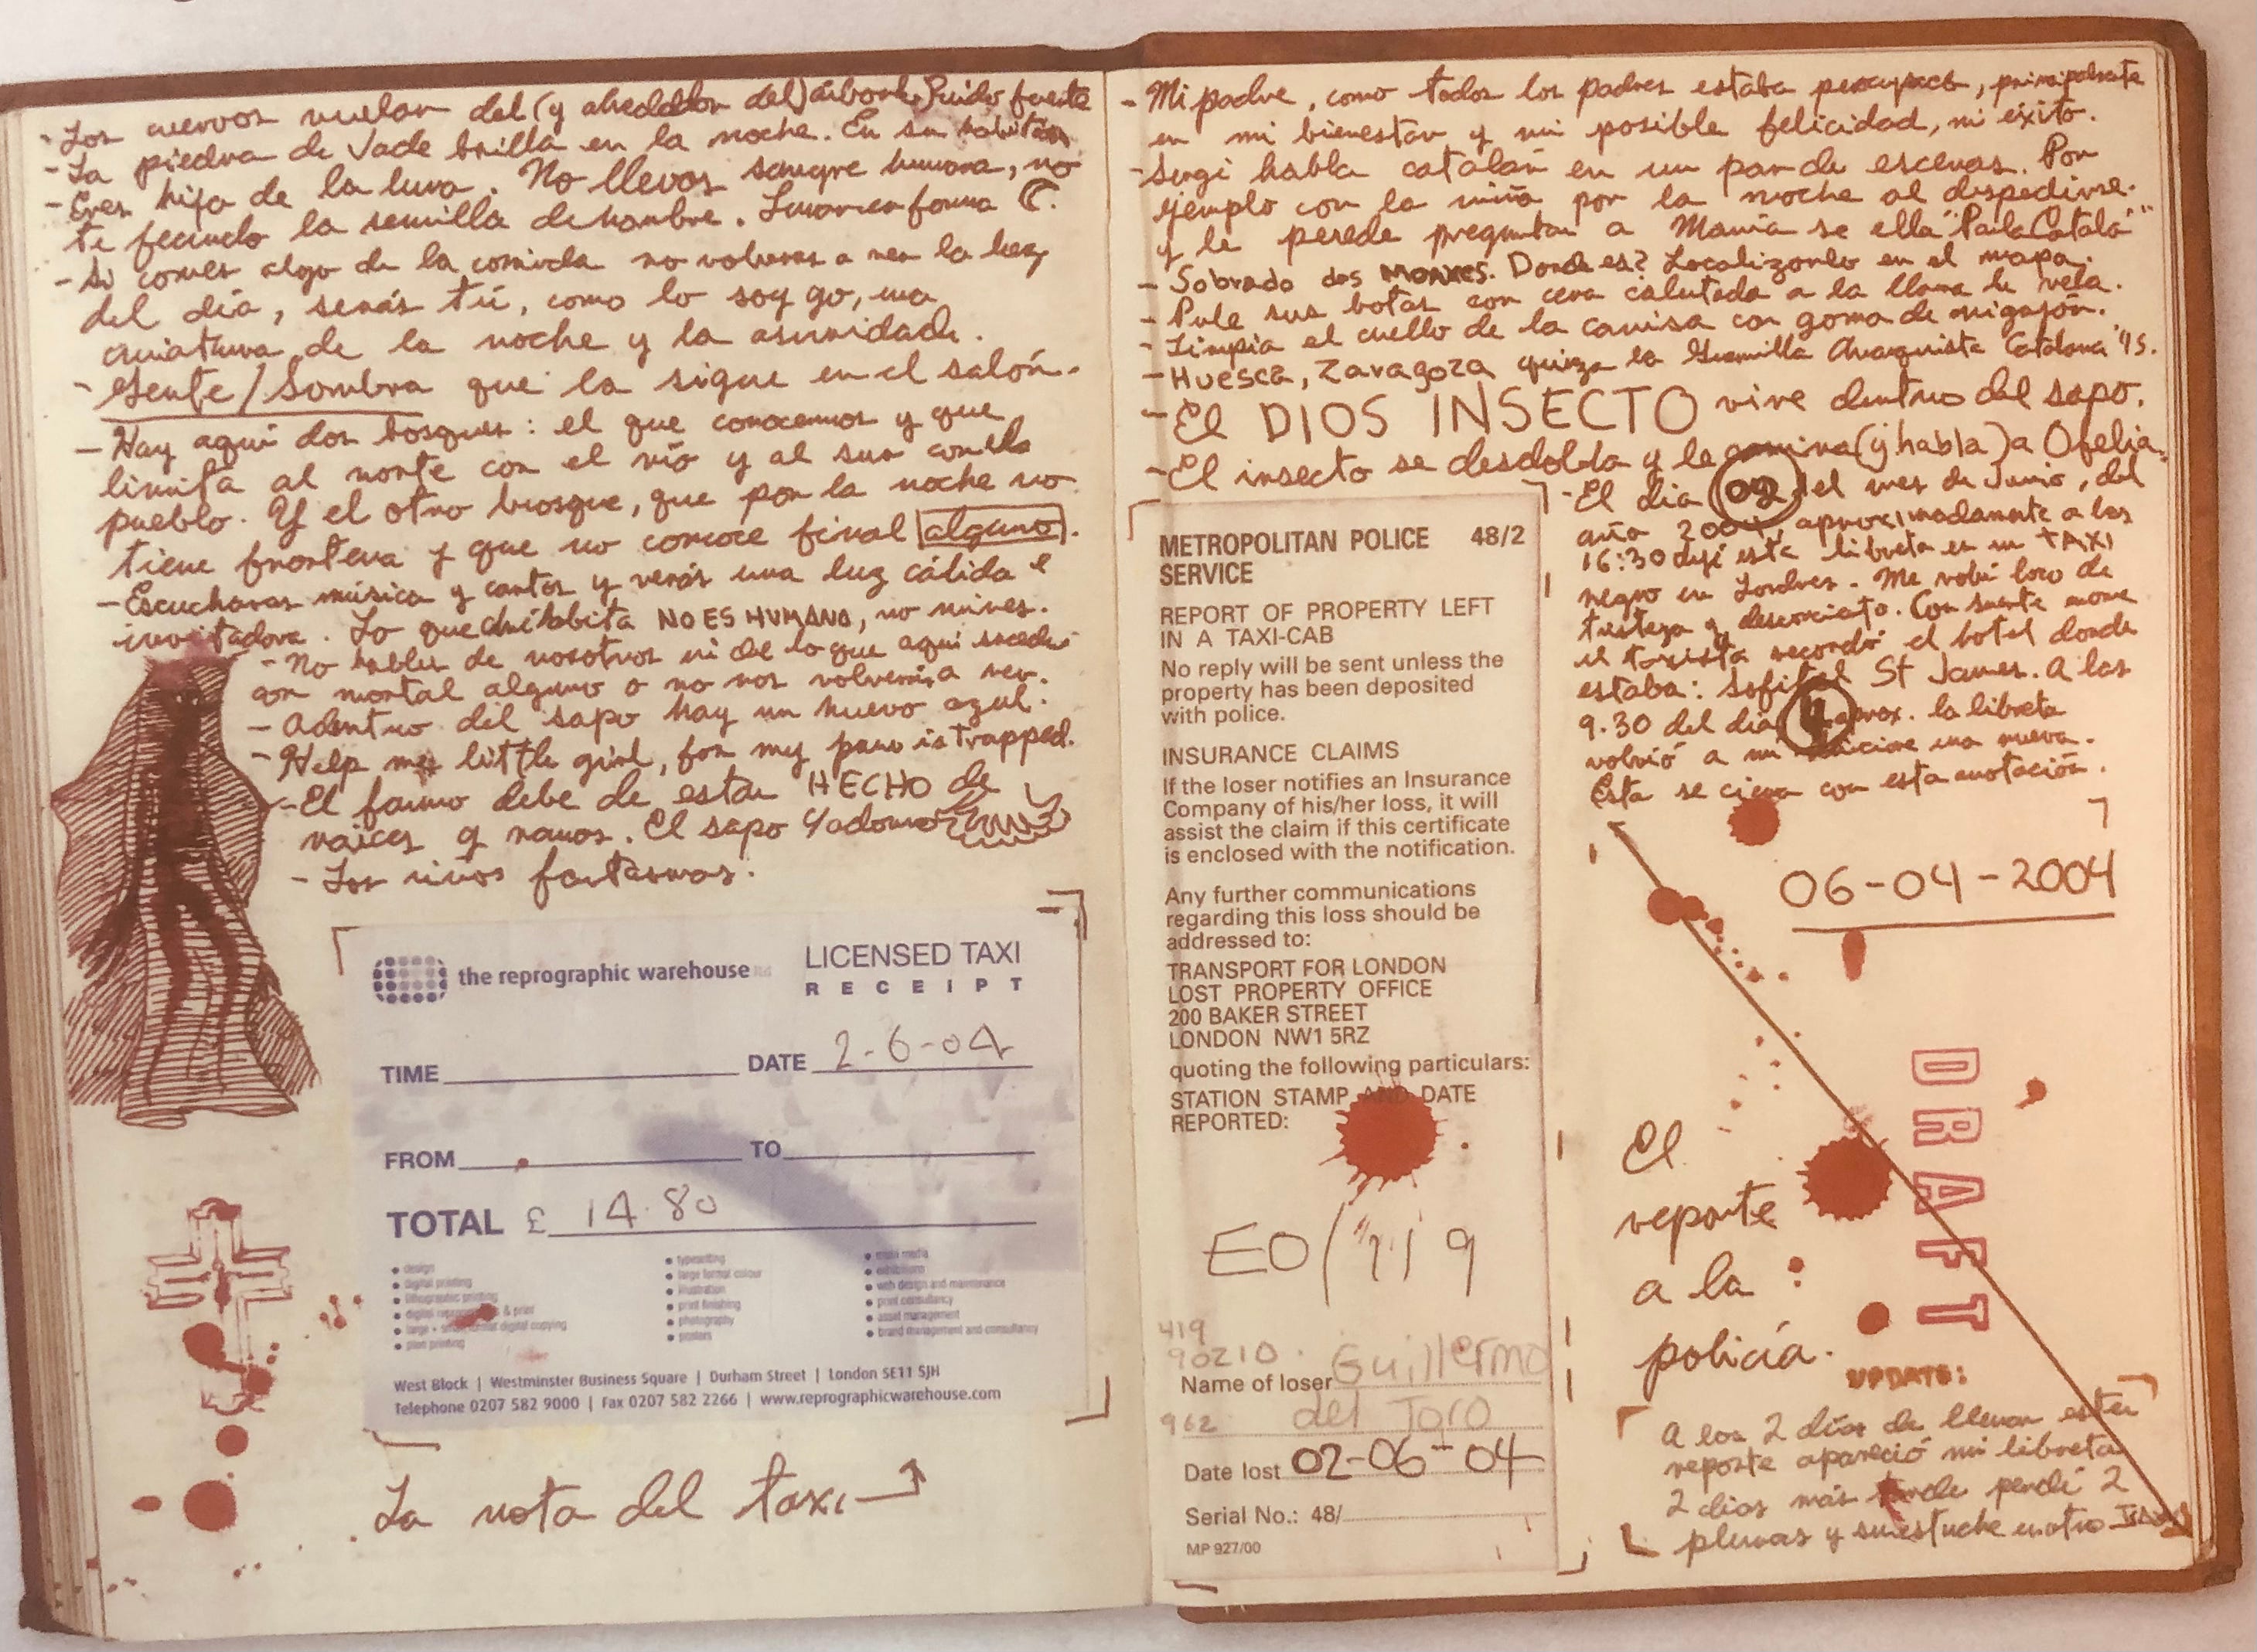 - Los cuervos vuelan del (y alrededor del) árbol. Ruido fuerte
- La piedra de Jade brilla en la noche. En su habitación
- Eres hija de la luna. No llevas sangre humana, no
te fecundo la semilla de hombre. Luna en forma
- Si comes algo de la comida no volveras a ver la luz
del día, serás tú, como lo soy yo, una
criatura de la noche y la oscuridad.
- Gente/Sombra que la sigue en el salón.
- Hay aquí dos bosques: el que conocemos y que
limita al norte con el río y al sur con el
pueblo. Y el otro bosque, que por la noche no
tiene frontera y que no conoce final alguno.
- Escucharas música y cantos y verás una luz cálida e
invitadora. Lo que ahí habita NO ES HUMANO, no mires.
- No hables de nosotros ni de lo que aquí sucede
con mortal alguno o no nos volverás a ver.
- Adentro del sapo hay un huevo azul.
- Help me little girl, for my paw is trapped.
- El fauno debe de estar HECHO de
raíces y ramas. El sapo
- Los niños fantasmas.
the reprographic warehouse
LICENSED TAXI
RECEIPT
TIME
DATE 2-6-04
FROM
TO
TOTAL £ 14.80
design
digital printing
lithographic printing
large format digital copying
plan printing
typesetting
large format colour
illustration
print finishing
photography
posters
exhibitions
web design and maintenance
print consultancy
asset management
brand management and consultancy
West Block | Westminster Business Square | Durham Street | London SE11 5JH
Telephone 0207 582 9000 | Fax 0207 582 2266 | www.reprographicwarehouse.com
La nota del taxi
- Mi padre, como todos los padres estaba preocupado, principalmente
en mi bienestar y mi posible felicidad, mi éxito.
- Sergi habla catalán en un par de escenas. Por
ejemplo con la niña por la noche al despedirse.
y le puede preguntar a Maria se ella "Parla Català"
- Sobrado dos MONXES. Donde es? Localizarlo en el mapa.
- Pule sus botas con cera calentada a la llama de vela.
- Limpia el cuello de la camisa con goma de migajón.
- Huesca, Zaragoza quiza la Guerrilla Anarquista Catalana '45.
- El DIOS INSECTO vive dentro del sapo.
- El insecto se desdobla y le camina (y habla) a Ofelia.
- El dia 02 del mes de Junio, del
año 2004, aproximadamente a las
16:30 dejé esta libreta en un TAXI
negro en Londres. Me volví loco de
tristeza y desconcierto. Con suerte
el taxista recordó el hotel donde
estaba: Sofitel St James. A las
9.30 del dia 4 aprox. la libreta
volvió a mi. Inicio una nueva.
Esta se cierra con esta anotación.
06-04-2004
METROPOLITAN POLICE 48/2
SERVICE
REPORT OF PROPERTY LEFT
IN A TAXI-CAB
No reply will be sent unless the
property has been deposited
with police.
INSURANCE CLAIMS
If the loser notifies an Insurance
Company of his/her loss, it will
assist the claim if this certificate
is enclosed with the notification.
Any further communications
regarding this loss should be
addressed to:
TRANSPORT FOR LONDON
LOST PROPERTY OFFICE
200 BAKER STREET
LONDON NW1 5RZ
quoting the following particulars:
STATION STAMP AND DATE
REPORTED:
419
90210
Name of loser Guillermo
962 del Toro
Date lost 02-06-04
Serial No.: 48/
MP 927/00
DRAFT
El
reporte
a la
policía.
UPDATE:
A los 2 días de llenar este
reporte apareció mi libreta
2 días más tarde perdí 2
plumas y su estuche en otro TAXI